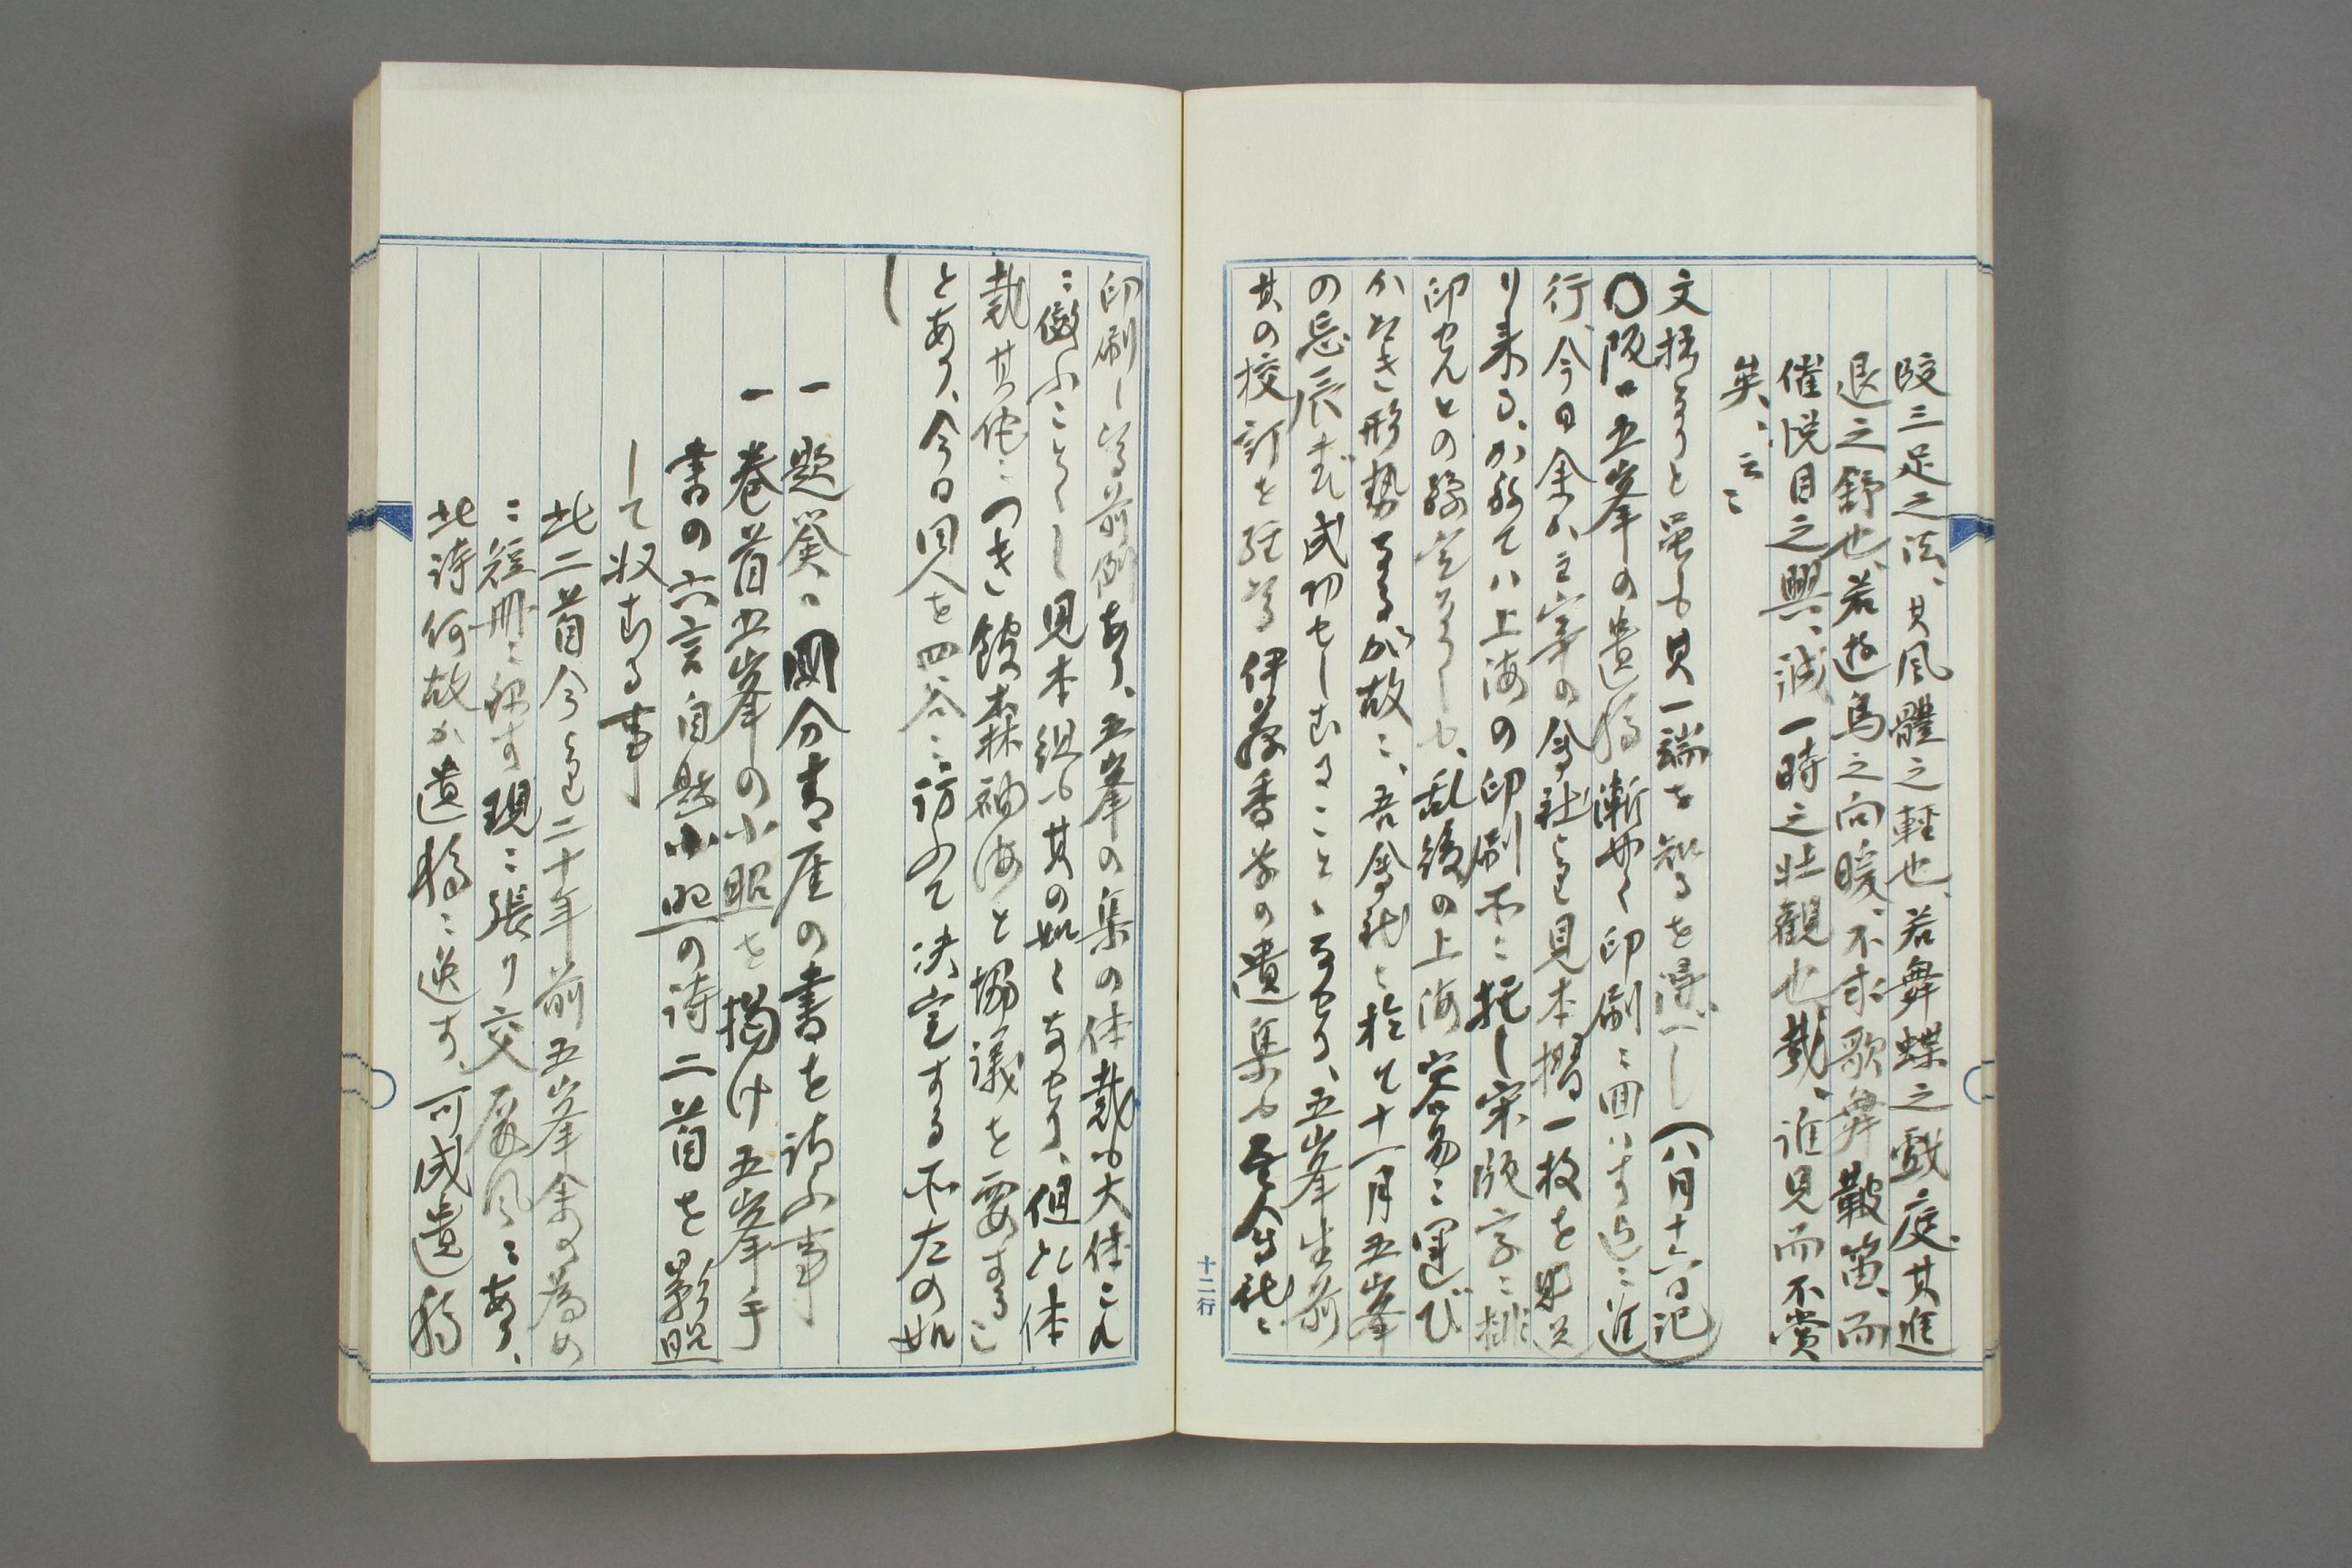 跤三足之法、其風體之輕也、若舞蝶之戲庭、其進
退之舒也、若遊鳥之向暖、不求歌舞鼓笛、而
催悦目之興、誠一時之壮觀也哉、誰見而不賞
矣、云々
文拙なりと虽も其一端を知るを得べし(八月十六日記)
〇阪口五峯の遺稿漸やく印刷ニ回ハす迄ニ進
行、今日余が主宰の會社より見本摺一枚を見送
り来る、かねてハ上海の印刷所ニ托し宋版字ニ排
印せんとの豫定なりしも、乱後の上海容易ニ運び
かたき形勢なるが故ニ、吾會社ニ於て十一月五峯
の忌辰まで成功せしむることゝなせり、五峯生前
其の校訂を経る伊藤香草の遺集も吾會社ニ
十二行
印刷し前例あり、五峯の集の体裁も大体これ
ニ倣ふことゝし見本組も其の如くなせり、但し体
裁其他ニつき館森袖海と協議を要するこ
とあり、今日同人を四谷ニ訪ふて決定する所左の如
し
一 題簽ハ國分青厓の書を請ふ事
一 巻首五峯の小照を掲け五峯手
書の六言自題小照の詩二首を影照
して収むる事
此二首今より二十年前五峯余の為め
ニ短冊ニ録す現ニ張り交屏風ニあり、
此詩何故か遺稿ニ逸す、可成遺稿